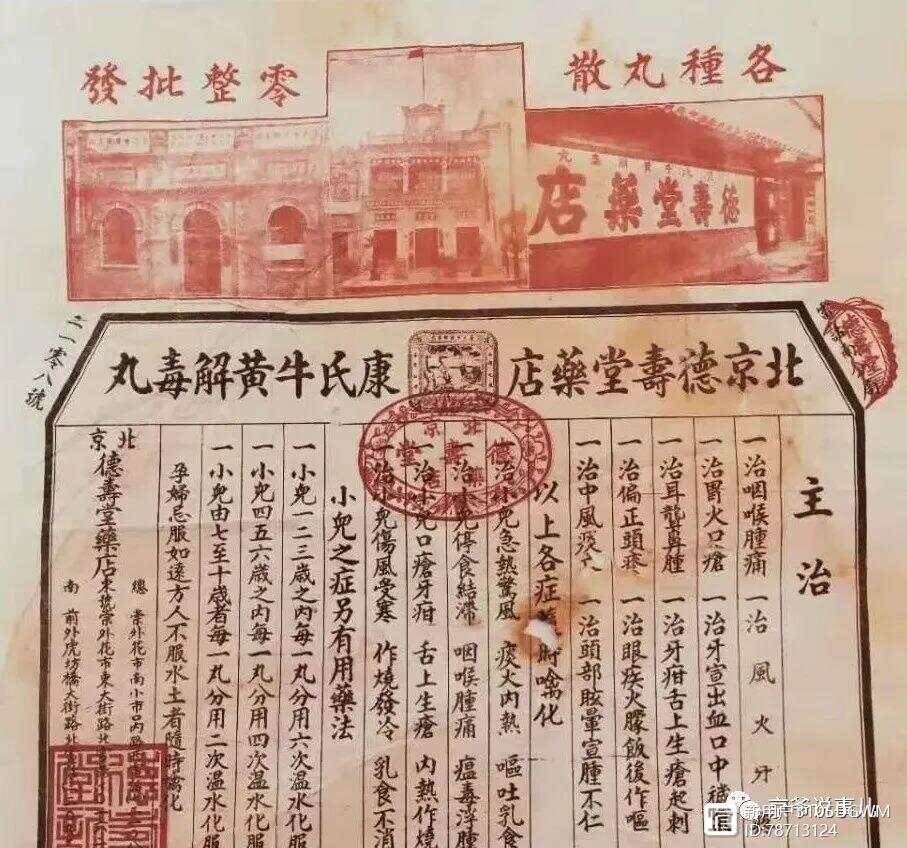 各種丸散
零整批發
德壽堂藥店
北京德壽堂藥店
康氏牛黃解毒丸
二一零八號
北京
德壽堂
主治
一治咽喉腫痛 一治風火牙
一治胃火口瘡 一治牙宣出血口中
一治耳聾鼻腫 一治牙疳舌上生瘡起刺
一治偏正頭疼 一治眼疾火矇飯後作嘔
一治中風痰 一治頭部眩暈宣腫不仁
以上各症 時噙化
治小兒急熱驚風 痰火內熱 嘔吐乳食
一治小兒停食結滯 咽喉腫痛 瘟毒浮腫
一治小兒口瘡牙疳 舌上生瘡 內熱作燒
一治小兒傷風受寒 作燒發冷 乳食不消
小兒之症另有用藥法
一小兒一二三歲之內每一丸分用六次溫水化服
一小兒四五六歲之內每一丸分用四次溫水化服
一小兒由七至十歲者每一丸分用二次溫水化服
孕婦忌服如遠方人不服水土者隨時噙化
北京德壽堂藥店
總 崇外花市南小市口內路
東 崇外花市東大街路北
南 前外虎坊橋大街路北
京爷说事儿
ID:78713124